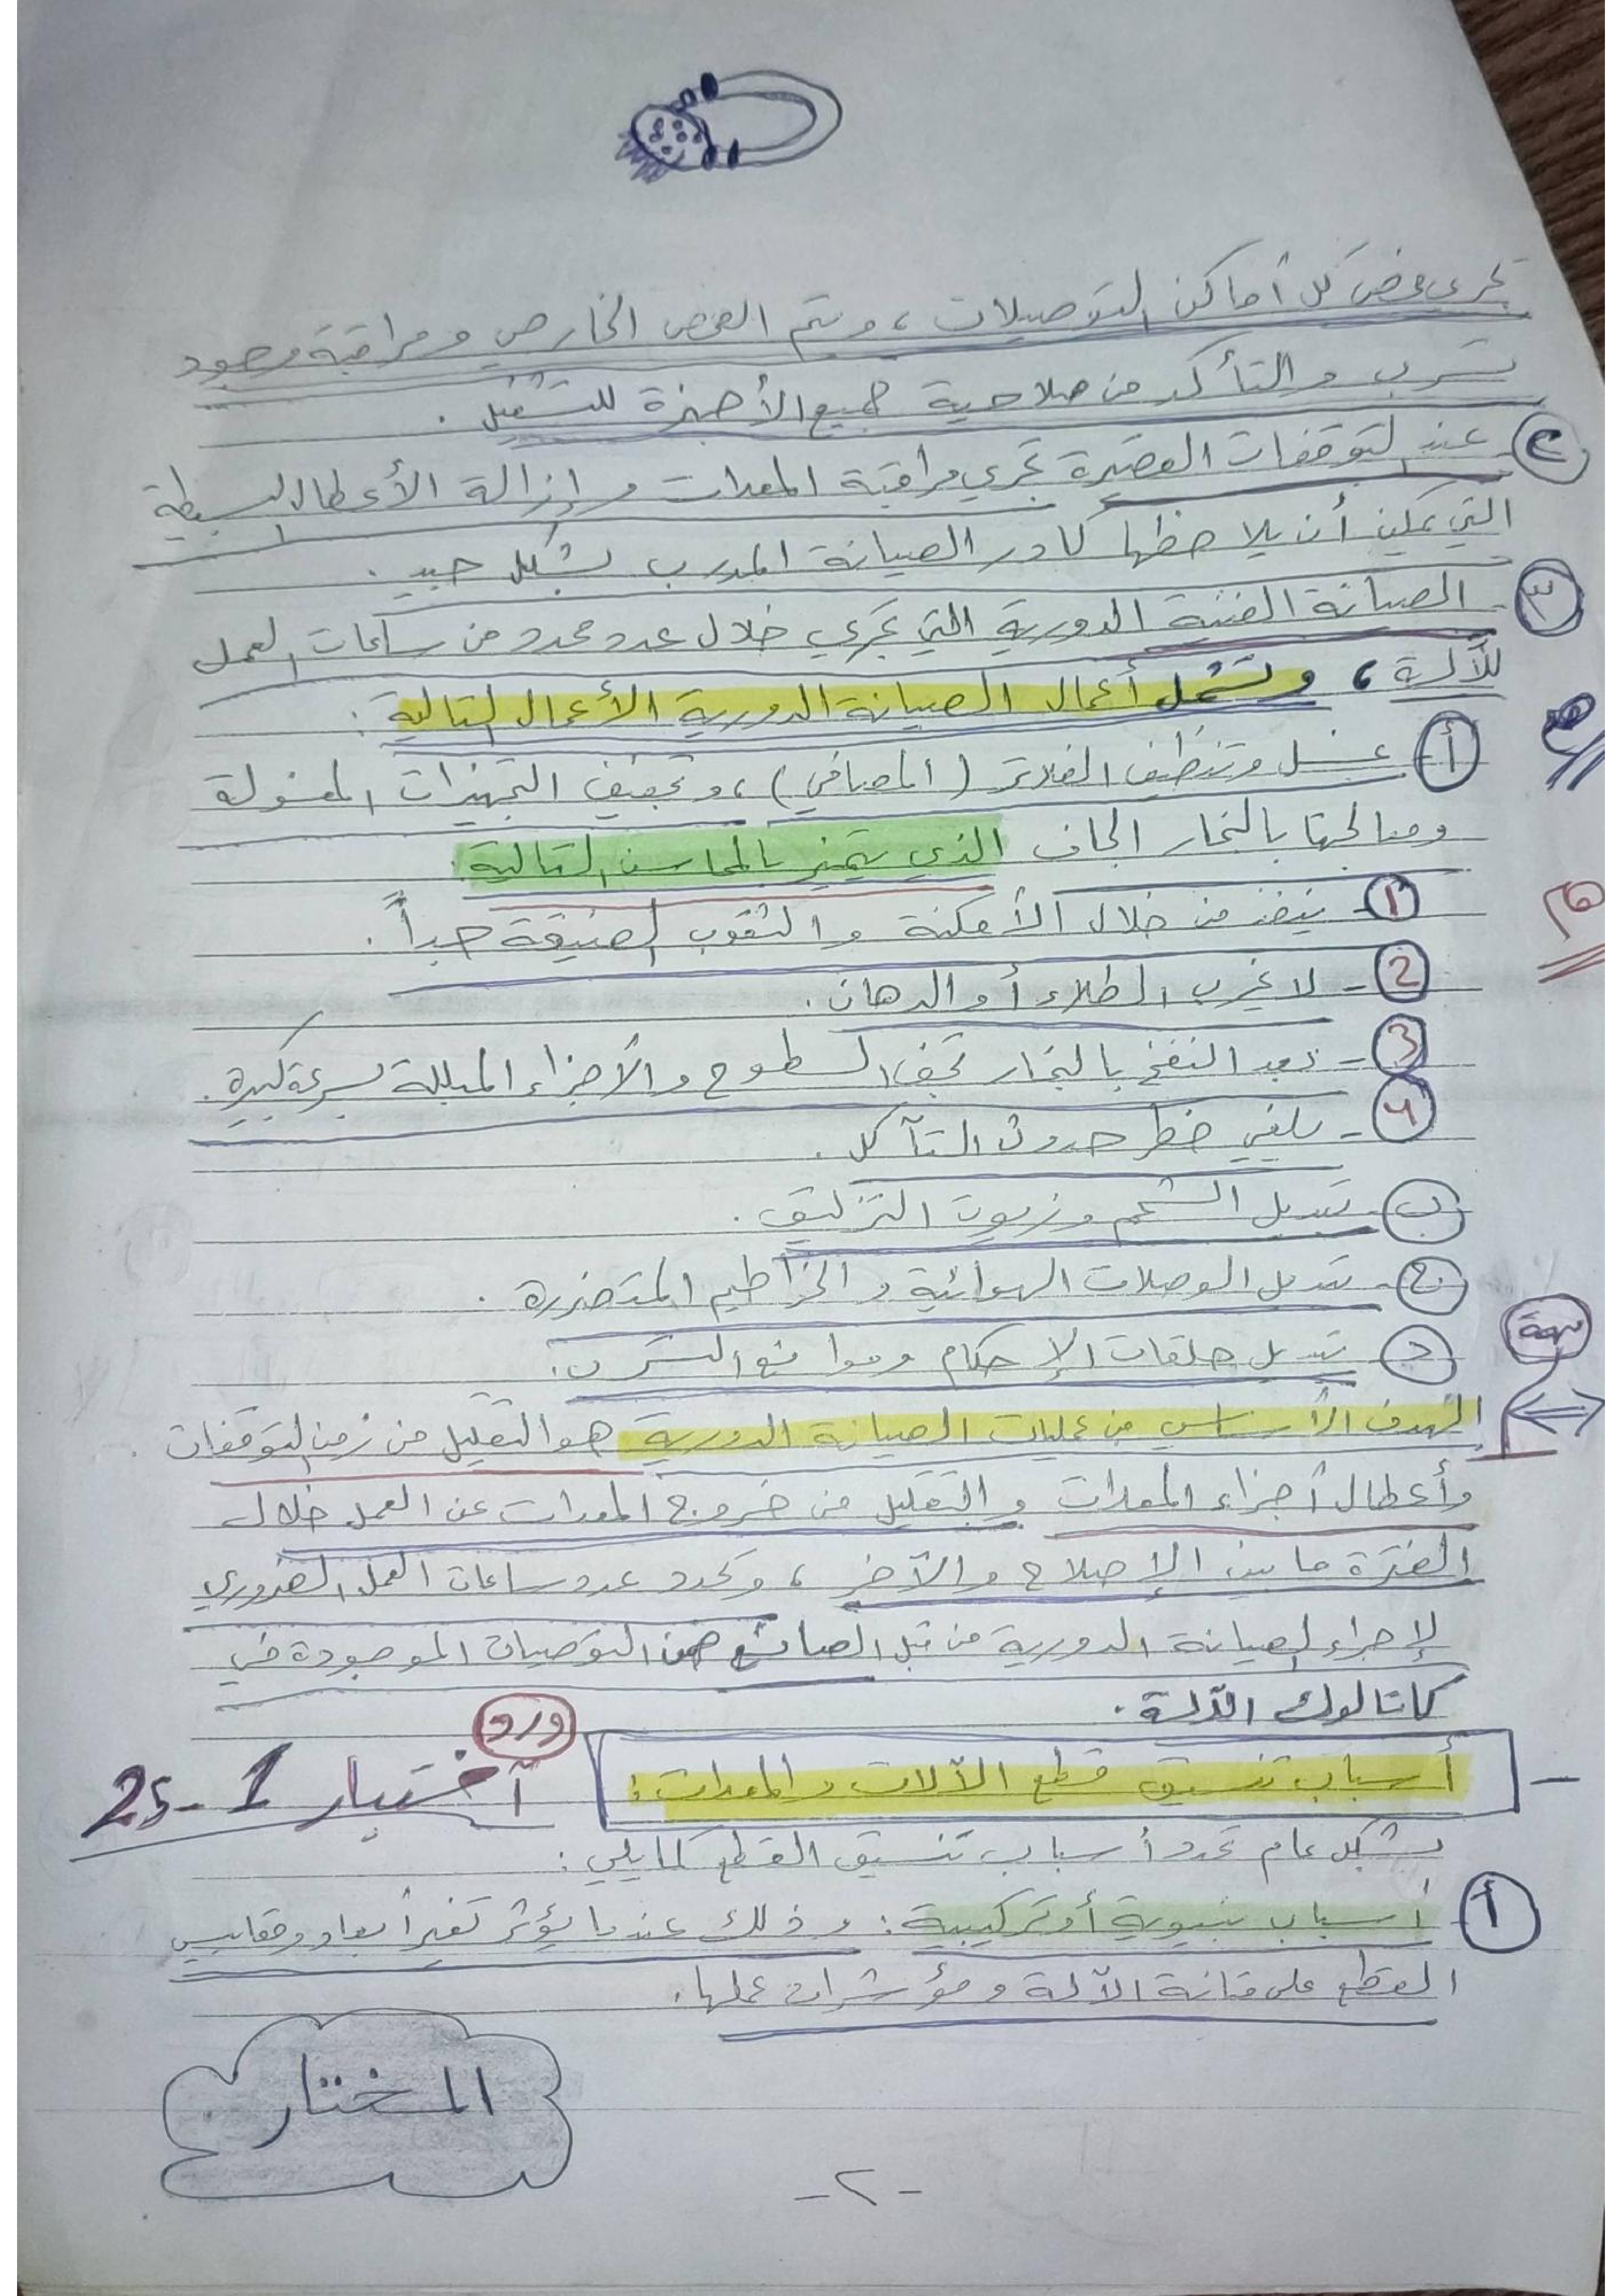 تجري فحص كل أماكن التوصيلات ، ويتم الفحص الخارجي ومراقبة وجود
تسرب والتأكد من صلاحية جميع الأجهزة للتشغيل .
٢ - عند التوقفات القصيرة تجري مراقبة المعدات وإزالة الأعطال البسيطة
التي يمكن أن يلاحظها كادر الصيانة المدرب بشكل جيد .
٣ - الصيانة الفنية الدورية التي تجري خلال عدد محدد من ساعات العمل
للآلة ، وتشمل أعمال الصيانة الدورية الأعمال التالية :
أ - غسل وتنظيف الفلاتر (المصافي) ، وتجفيف التجهيزات المغسولة
ومعالجتها بالبخار الجاف الذي يتميز بالمحاسن التالية :
١ - ينفذ من خلال الأمكنة والثقوب الضيقة جداً .
2 - لا يخرب الطلاء أو الدهان .
3 - بعد النفخ بالبخار تجف السطوح والأجزاء المبللة بسرعة كبيرة .
٤ - يلغي خطر حدوث التآكل .
ب - تبديل الشحم وزيوت التزليق .
ج - تبديل الوصلات الهوائية والخراطيم المتضررة .
د - تبديل حلقات الإحكام وموانع التسرب .
مهمة
الهدف الأساسي من عمليات الصيانة الدورية هو التقليل من زمن التوقفات
وأعطال أجزاء المعدات والتقليل من خروج المعدات عن العمل خلال
الفترة ما بين الإصلاح والآخر ، وتحدد عدد ساعات العمل الضروري
لإجراء الصيانة الدورية من قبل الصانع ضمن التوصيات الموجودة في
كاتالوك الآلة .
- أسباب تنسيق قطع الآلات والمعدات :
دورة
اختبار 1 - 25
بشكل عام تحدد أسباب تنسيق القطع كما يلي :
أ - أسباب بنيوية أو تركيبية : وذلك عندما يؤثر تغير أبعاد ومقاييس
القطع على متانة الآلة ومؤشرات عملها .
المختار
- ٢ -